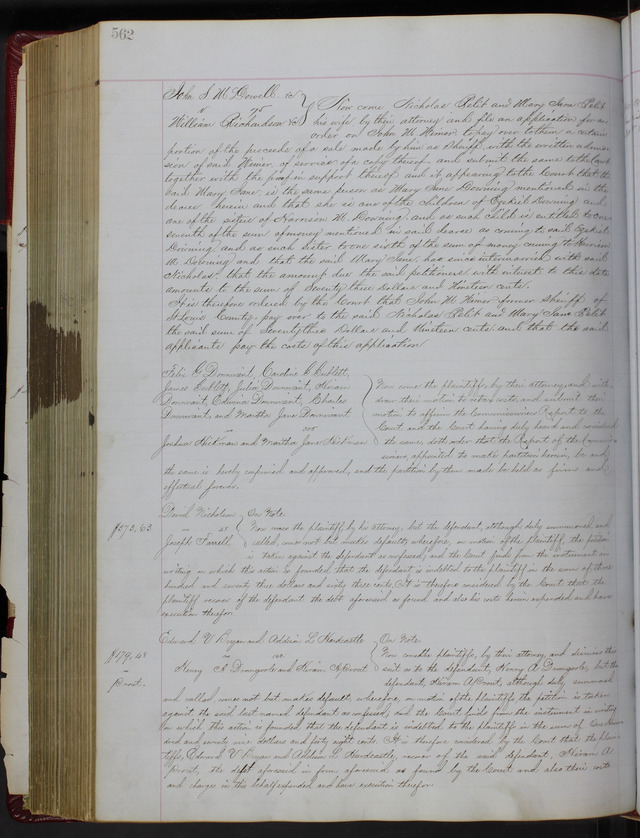 562
John S. McDowell &c
vs
William Richardson &c
Now come Nicholas Pelit and Mary Jane Pelit
his wife by their attorney and file an application for an
order on John M. Wimer to pay over to them a certain
portion of the proceeds of a sale made by him as Sheriff with the written admis-
sion of said Wimer, of service of a copy thereof and submit the same to the Court
together with the proof in support thereof and it appearing to the Court that the
said Mary Jane is the same person as Mary Jane Downing mentioned in the
decree herein and that she is one of the children of Ezekiel Downing and
one of the sisters of Harrison M. Downing and as such child is entitled to one
seventh of the sum of money mentioned in said decree as coming to said Ezekiel
Downing and as such sister to one sixth of the sum of money coming to Harrison
M. Downing and that the said Mary Jane has since intermarried with said
Nicholas, that the amount due the said petitioners with interest to this date
amounts to the sum of Seventy three Dollars and Nineteen cents.
It is therefore ordered by the Court that John M. Wimer former Sheriff of
St Louis County pay over to the said Nicholas Pelit and Mary Jane Pelit
the said sum of Seventy three Dollars and Nineteen cents and that the said
applicants pay the costs of this application
Felix G. Dunnivant, Caroline G. Gullett,
James Gullett, Julia Dunnivant, Hiram
Dunnivant, Edwina Dunnivant, Charles
Dunnivant, and Martha Jane Dunnivant
vs
Joshua Hickman and Martha Jane Hickman
Now come the plaintiffs, by their attorney, and with-
draw their motion to and submit their
motion to affirm the Commissioners Report to the
Court and the Court having duly heard and considered
the same, doth order that the Report of the Commis-
sioners, appointed to make partition herein, be and
the same is hereby confirmed and approved, and the partition by them made be held as firm and
effectual forever.
$373,63
David Nicholson
vs
Joseph Farrell
On Note
Now comes the plaintiff by his attorney, but the defendant, although duly summoned and
called, comes not but makes default, wherefore, on motion of the plaintiff, the petition
is taken against the defendant as confessed; and the Court finds from the instrument in
writing on which this action is founded that the defendant is indebted to the plaintiff in the sum of three
hundred and seventy three dollars and sixty three cents. It is therefore considered by the Court that the
plaintiff recover of the defendant the debt aforesaid as found and also his costs herein expended and have
execution therefor
$179,48
Prout.
Edward V. Bryan and Addison L. Hardcastle
vs
Henry A. and Hiram A. Prout
On Note
Now come the plaintiffs, by their attorney, and dismiss their
suit as to the defendant, Henry A. but the
defendant, Hiram A. Prout, although duly summoned
and called comes not but makes default; wherefore, on motion of the plaintiffs the petition is taken
against the said last named defendant as confessed; and the Court finds from the instrument in writing
on which this action is founded that the defendant is indebted to the plaintiffs in the sum of One hun-
dred and seventy nine dollars and forty eight cents. It is therefore considered by the Court that the plain-
tiffs, Edward V. Bryan and Addison L. Hardcastle, recover of the said defendant, Hiram A.
Prout, the debt aforesaid in form aforesaid as found by the Court and also their costs
and charges in this behalf expended and have execution therefor.